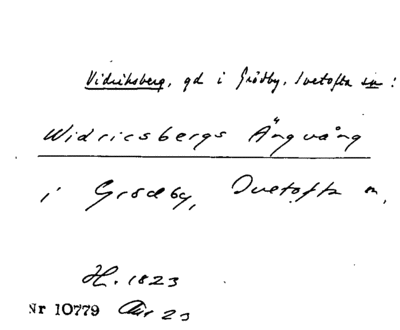 Vidriksberg, gd i Grödby, Tvetofta sn:
Widricsbergs Ängvång
i Grödby, Tvetofta sn,
H. 1823
Nr 10779 Akt 23